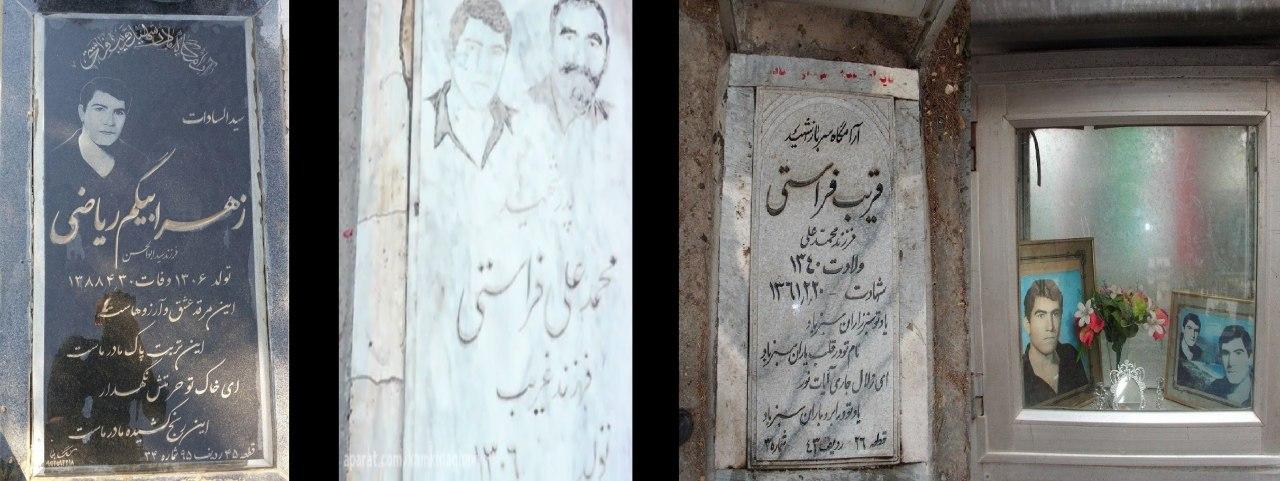 سیدالسادات
زهرا بیگم ریاضی
فرزند سید ابوالحسن
تولد ۱۳۰۶ وفات ۱۳۸۸٫۴٫۳۰
این مرقد عشق و آرزوهاست
این تربت پاک مادر ماست
ای خاک تو حرمتش نگهدار
این رنج کشیده مادر ماست
قطعه ۴۵ ردیف ۹۵ شماره ۳۴
پدر شهید
محمد علی فراستی
فرزند غریب
تولد ۱۳۰۶
aparat.com/
آرامگاه سرباز شهید
قریب فراستی
فرزند محمد علی
ولادت ۱۳۴۰
شهادت ۱۳۶۱٫۲٫۲۰
یاد تو سبز
نام تو در قلب یاران سبز باد
ای زلال جاری آیات نور
یاد تو در باران سبز باد
قطعه ۲۶ ردیف ۴۳ شماره ۳